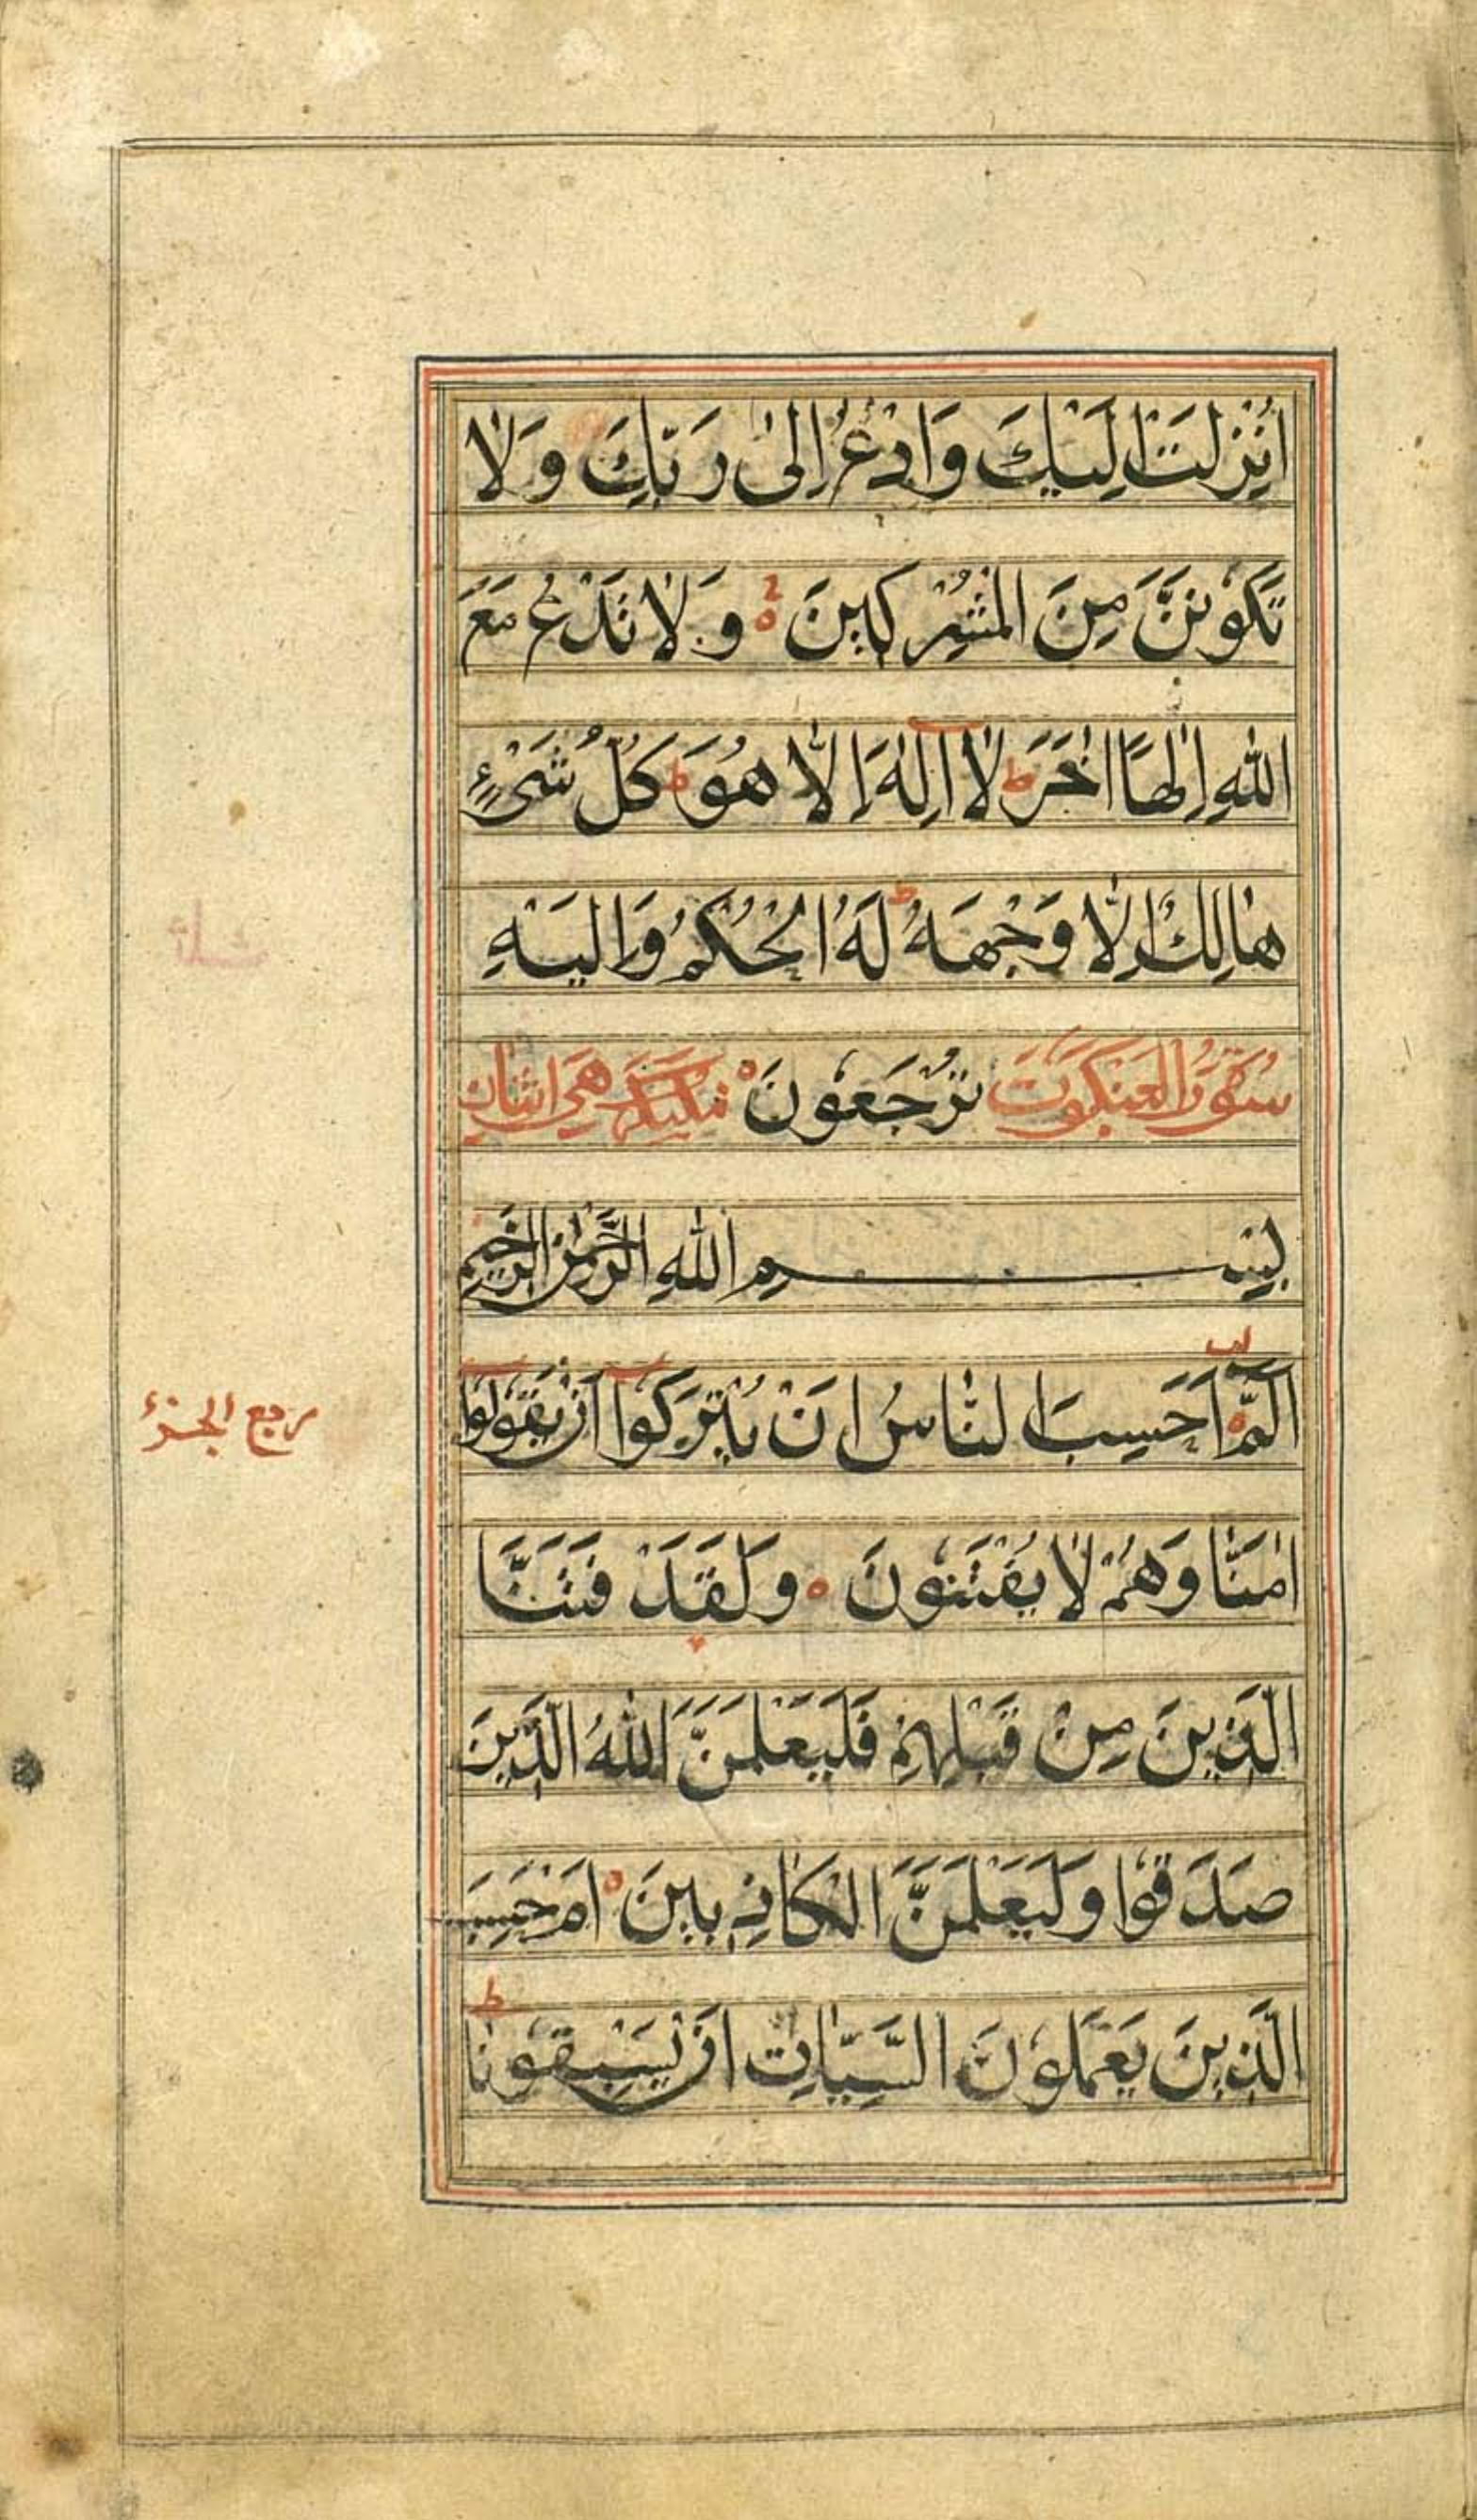 اُنْزِلَتْ اِلَيْكَ وَادْعُ اِلىٰ رَبِّكَ وَلَا
تَكُوْنَنَّ مِنَ الْمُشْرِكِيْنَ وَلَا تَدْعُ مَعَ
اللّٰهِ اِلٰهًا اٰخَرَ ط لَا اِلٰهَ اِلَّا هُوَ ط كُلُّ شَیْءٍ
هَالِكٌ اِلَّا وَجْهَهُ ط لَهُ الْحُكْمُ وَاِلَيْهِ
سُوْرَةُ الْعَنْكَبُوْتِ تُرْجَعُوْنَ مَكِّيَّةٌ هِیَ
بِسْمِ اللّٰهِ الرَّحْمٰنِ الرَّحِيْمِ
الٓمّٓ اَحَسِبَ النَّاسُ اَنْ يُتْرَكُوْا اَنْ يَقُوْلُوْا
اٰمَنَّا وَهُمْ لَا يُفْتَنُوْنَ وَلَقَدْ فَتَنَّا
الَّذِيْنَ مِنْ قَبْلِهِمْ فَلَيَعْلَمَنَّ اللّٰهُ الَّذِيْنَ
صَدَقُوْا وَلَيَعْلَمَنَّ الْكَاذِبِيْنَ اَمْ حَسِبَ
الَّذِيْنَ يَعْمَلُوْنَ السَّيِّاٰتِ اَنْ يَسْبِقُوْنَا ط
ربع الجزء